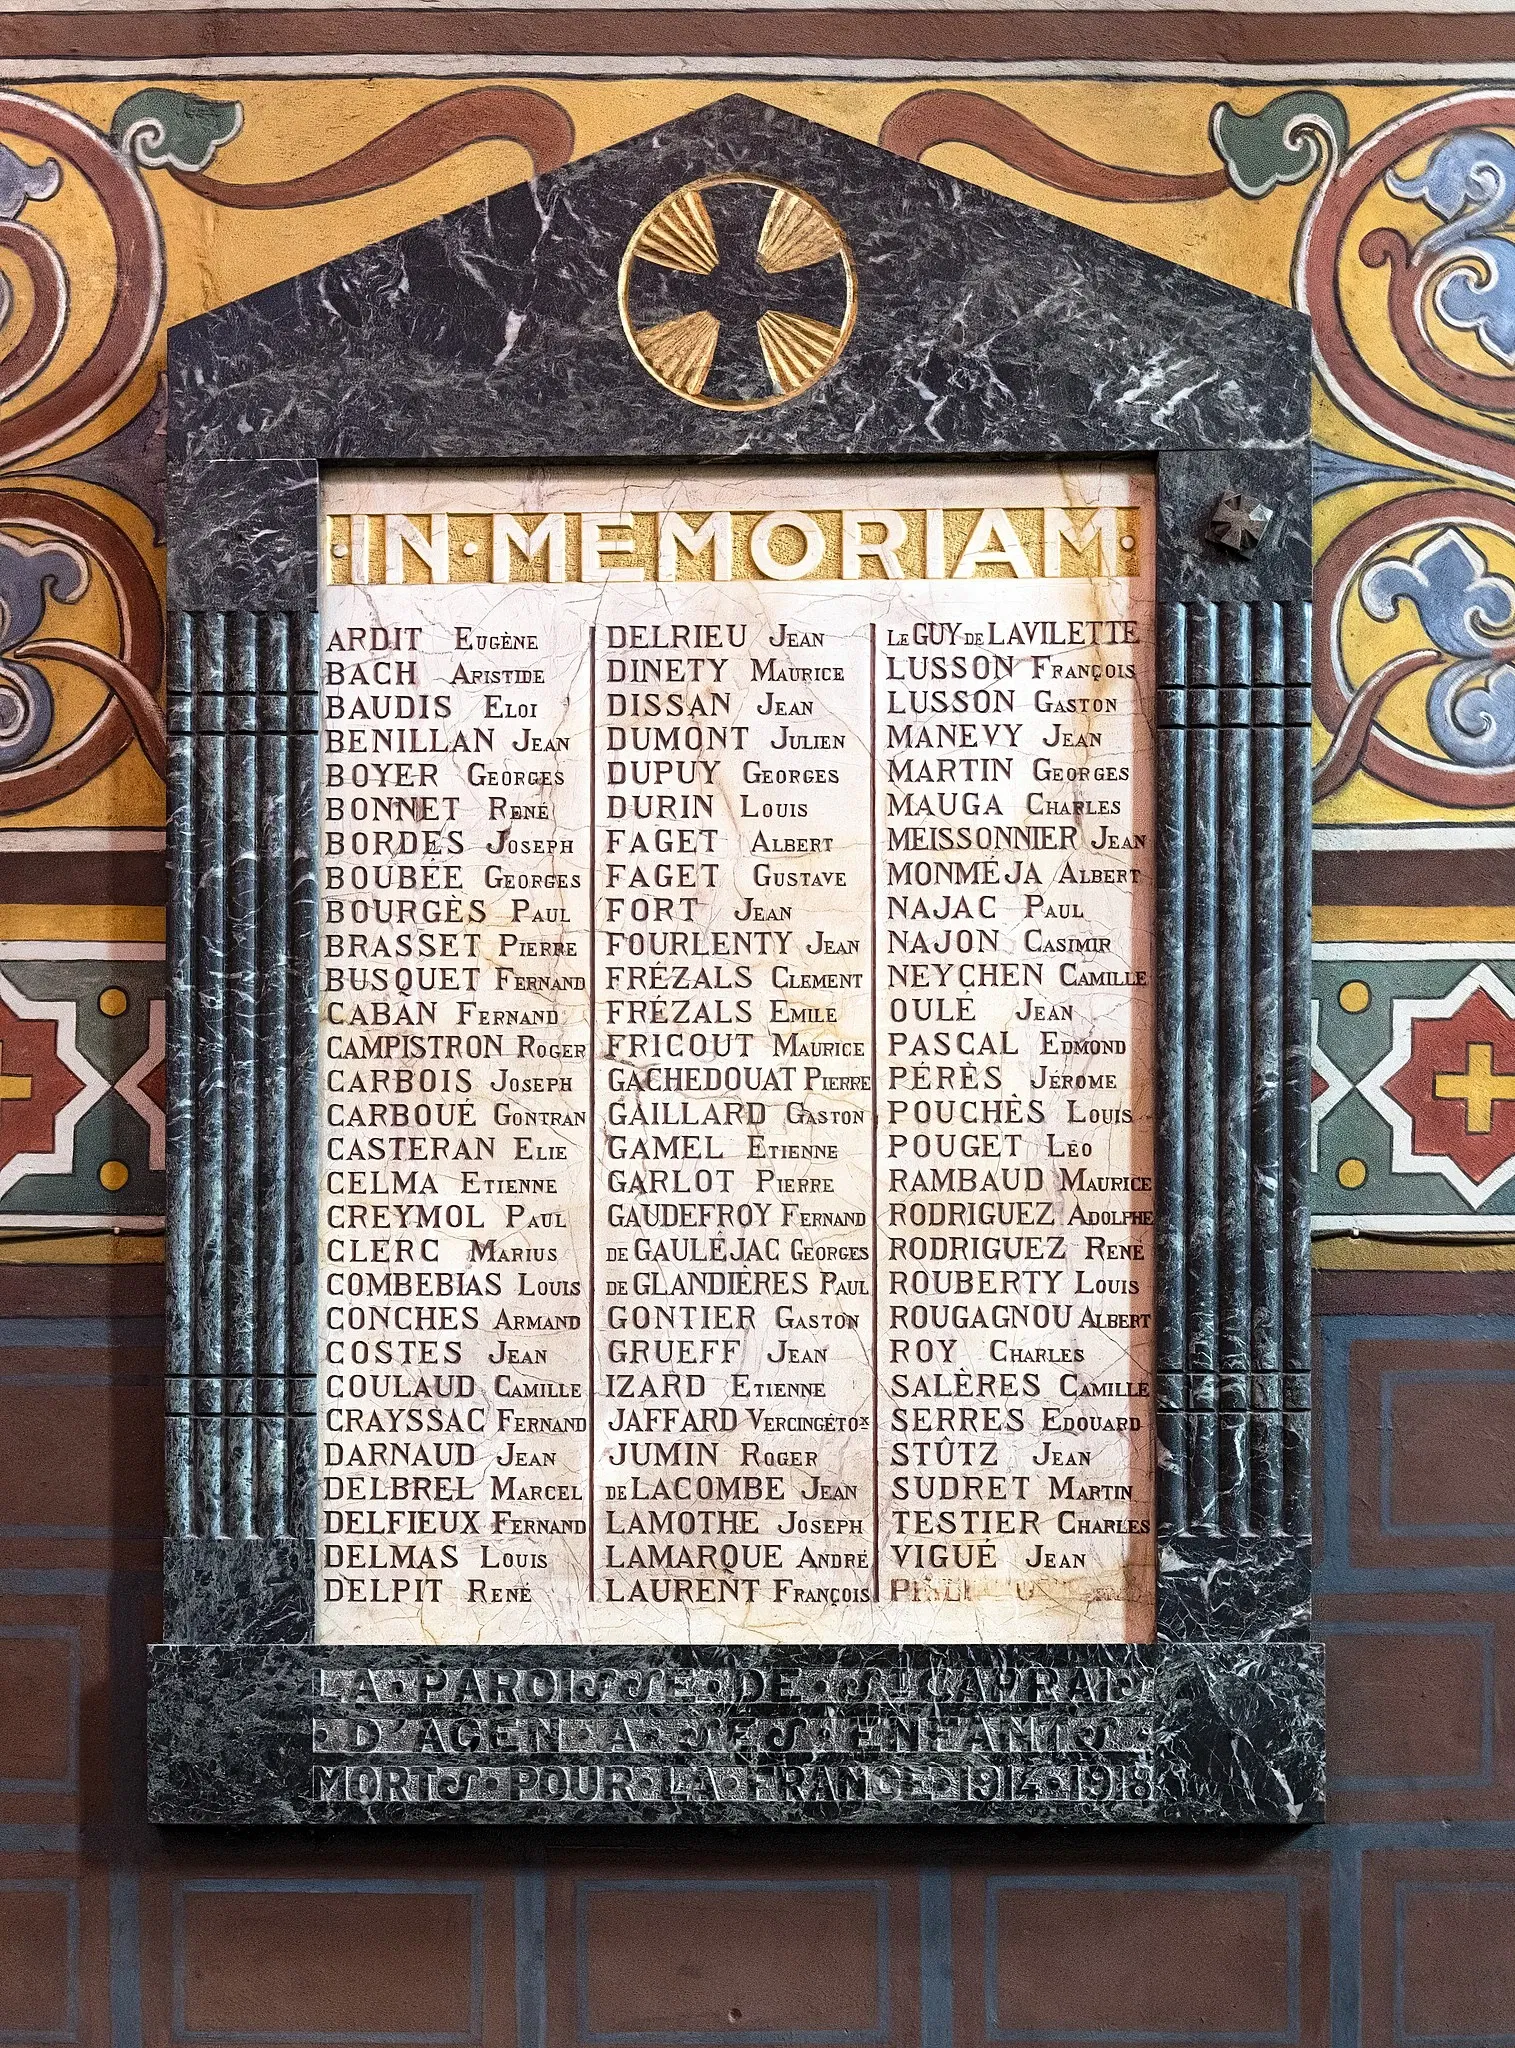 ·IN·MEMORIAM·
ARDIT EUGÈNE
BACH ARISTIDE
BAUDIS ELOI
BENILLAN JEAN
BOYER GEORGES
BONNET RENÉ
BORDES JOSEPH
BOUBÉE GEORGES
BOURGÈS PAUL
BRASSET PIERRE
BUSQUET FERNAND
CABAN FERNAND
CAMPISTRON ROGER
CARBOIS JOSEPH
CARBOUÉ GONTRAN
CASTERAN ELIE
CELMA ETIENNE
CREYMOL PAUL
CLERC MARIUS
COMBEBIAS LOUIS
CONCHES ARMAND
COSTES JEAN
COULAUD CAMILLE
CRAYSSAC FERNAND
DARNAUD JEAN
DELBREL MARCEL
DELFIEUX FERNAND
DELMAS LOUIS
DELPIT RENÉ
DELRIEU JEAN
DINETY MAURICE
DISSAN JEAN
DUMONT JULIEN
DUPUY GEORGES
DURIN LOUIS
FAGET ALBERT
FAGET GUSTAVE
FORT JEAN
FOURLENTY JEAN
FRÉZALS CLEMENT
FRÉZALS EMILE
FRICOUT MAURICE
GACHEDOUAT PIERRE
GAILLARD GASTON
GAMEL ETIENNE
GARLOT PIERRE
GAUDEFROY FERNAND
DE GAULÉJAC GEORGES
DE GLANDIÈRES PAUL
GONTIER GASTON
GRUEFF JEAN
IZARD ETIENNE
JAFFARD VERCINGÉTOX
JUMIN ROGER
DE LACOMBE JEAN
LAMOTHE JOSEPH
LAMARQUE ANDRÉ
LAURENT FRANÇOIS
LE GUY DE LAVILETTE
LUSSON FRANÇOIS
LUSSON GASTON
MANEVY JEAN
MARTIN GEORGES
MAUGA CHARLES
MEISSONNIER JEAN
MONMÉJA ALBERT
NAJAC PAUL
NAJON CASIMIR
NEYCHEN CAMILLE
OULÉ JEAN
PASCAL EDMOND
PÉRÈS JÉROME
POUCHÈS LOUIS
POUGET LÉO
RAMBAUD MAURICE
RODRIGUEZ ADOLPHE
RODRIGUEZ RENÉ
ROUBERTY LOUIS
ROUGAGNOU ALBERT
ROY CHARLES
SALÈRES CAMILLE
SERRES EDOUARD
STÛTZ JEAN
SUDRET MARTIN
TESTIER CHARLES
VIGUÉ JEAN
LA·PAROISSE·DE·ST CAPRAIS
·D'AGEN·A·SES·ENFANTS·
MORTS·POUR·LA·FRANCE·1914·1918